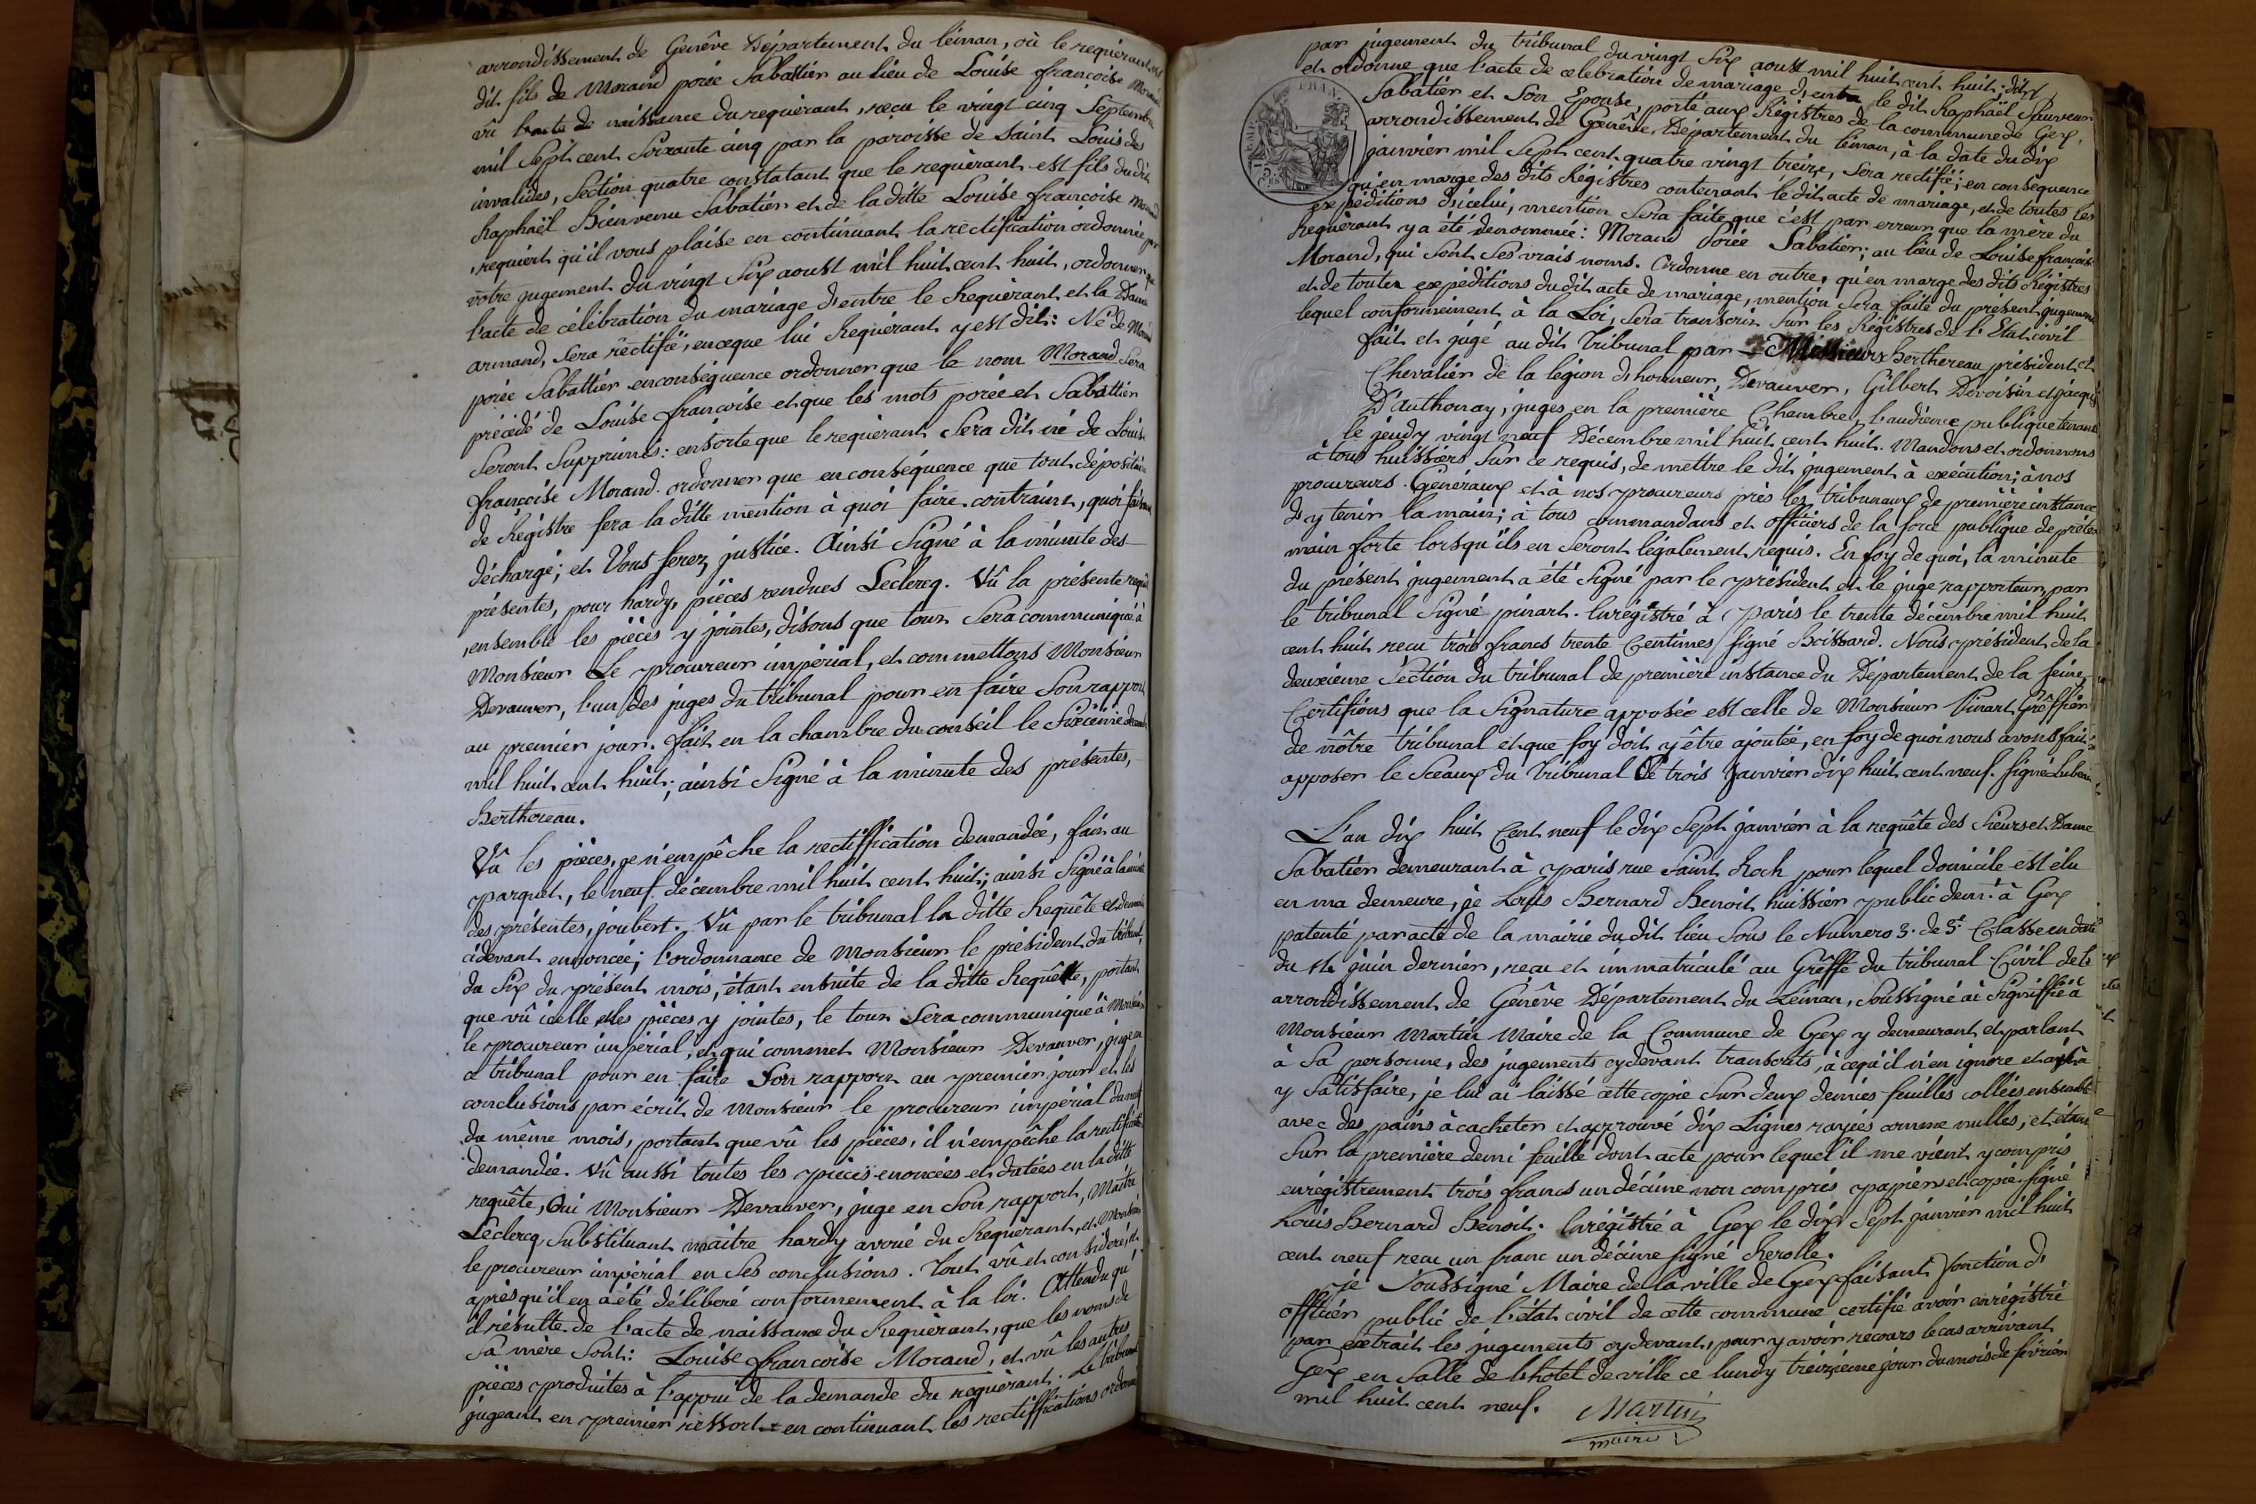 arrondissement de Genêve Département du léman, où le requérant est
dit fils de Morand porée Sabattier au lieu de Louise françoise Morand
vû l'acte de naissance du requérant, reçu le vingt cinq Septembre
mil Sept cent Soixante cinq par la paroisse de Saint Louis des
invalides, Section quatre constatant que le requérant est fils du dit
Raphaël Bienvenu Sabatier et de la ditte Louise françoise Morand
, requiert qu'il vous plaise en continuant la rectification ordonnée par
votre jugement du vingt Six aoust mil huit cent huit, ordonner que
l'acte de célébration du mariage d'entre le Requérant et la Dame
armand, Sera rectifié, en ce que lui Requérant y est dit: Né de Morand
porée Sabattier en conséquence ordonner que le nom Morand Sera
précédé de Louise françoise et que les mots porée et Sabattier
Seront Supprimés: ensorte que le requérant Sera dit né de Louise
françoise Morand. ordonner que en conséquence que tout dépositaire
de Régistre fera la ditte mention à quoi faire contraint, quoi faisant
déchargé; et Vous ferez justice. Ainsi Signé à la minute des
présentes, pour hardy, pièces rendues Leclercq. Vû la présente requête
, ensemble les pièces y jointes, disons que tout Sera communiqué à
Monsieur Le procureur impérial, et commettons Monsieur
Devauver, l'un des juges du tribunal pour en faire Son rapport
au premier jour. fait en la chambre du conseil le Sixième décembre
mil huit cent huit; ainsi Signé à la minute des présentes,
Berthereau.
Vû les pièces, je n'empêche la rectiffication demandée, fait au
parquet, le neuf décembre mil huit cent huit; ainsi Signé à la minute
des présentes, joubert. Vû par le tribunal la ditte Requête et demande
cidevant enoncée; l'ordonnance de Monsieur le président du tribunal,
du Six du présent mois, étant ensuite de la ditte Requête, portant
que vû icelle et les pièces y jointes, le tout Sera communiqué à Monsieur
le procureur impérial, et qui commet Monsieur Devauver, juge en
ce tribunal pour en faire Son rapport au premier jour et les
conclusions par écrit de Monsieur le procureur impérial du neuf
du même mois, portant que vû les pièces, il n'empêche la rectification
demandée. Vû aussi toutes les pièces enoncées et datées en la ditte
requête, Oui Monsieur Devauver, juge en Son rapport, Maitre
Leclercq Substituant maitre hardy avoué du Requérant, et Monsieur
le procureur impérial en Ses conclusions. Tout vû et considéré, et
après qu'il en a été délibéré conformement à la loi. Attendu qu'
il résulte de l'acte de naissance du Requérant, que les noms de
Sa mère Sont: Louise françoise Morand, et vû les autres
pièces produites à l'appui de la demande du requérant. Le tribunal
jugeant en premier ressort en continuant les rectiffications ordonnées
par jugement du tribunal du vingt Six aoust mil huit cent huit; dit
et ordonne que l'acte de celebration de mariage d'entre le dit Raphaël Sauveur
Sabatier et Son Epouse, porté aux Régistres de la commune de Gex,
arrondissement de Genêve, Département du léman, à la date du dix
janvier mil Sept cent quatre vingt treize, Sera rectifié; en conséquence
qu'en marge des dits Régistres contenant le dit acte de mariage, et de toutes les
expéditions d'icelui, mention Sera faite que c'est par erreur que la mere du
Requérant y a été denommée: Morand Porée Sabatier; au lieu de Louise françoise
Morand, qui Sont Ses vrais noms. Ordonne en outre, qu'en marge des dits Régistres
et de toutes expéditions du dit acte de mariage, mention Sera faite du présent jugement
lequel conformément à la Loi, Sera transcrit Sur les Régistres de l'Etat civil
fait et jugé au dit Tribunal par Messieurs Berthereau président, et
Chevalier de la légion d'honneur, Devauver, Gilbert Devoisin et jacquis
D'authonay, juges en la première Chambre, l'audience publique tenante
le jeudy vingt neuf Décembre mil huit cent huit. Mandons et ordonnons
à tous huissiers Sur ce requis, de mettre le dit jugement à exécution; à nos
procureurs Généraux et à nos procureurs près les tribunaux de première instance
d'y tenir la main; à tous commandans et officiers de la force publique de prêter
main forte lorsqu'ils en Seront légalement requis. En foy de quoi, la minute
du présent jugement a été Signé par le président et le juge rapporteur, par
le tribunal Signé pinart. Enrégistré à paris le trente décembre mil huit
cent huit reçu trois francs trente Centimes, Signé Boissard. Nous président de la
deuxième Section du tribunal de première instance du Département de la Seine,
Certifions que la Signature apposée est celle de Monsieur Pinart Greffier
de nôtre tribunal et que foy doit y être ajoutée, en foy de quoi nous avons fait
apposer le Sceaux du Tribunal Ce trois Janvier dix huit cent neuf. Signé
L'an dix huit Cent neuf le dix Sept janvier à la requête des Sieurs et Dame
Sabatier demeurant à paris rue Saint Roch pour lequel domicile est élu
en ma demeure, je Louis Bernard Benoit huissier public demt à Gex
patenté par acte de la mairie du dit lieu Sous le Numero 3. de 5e Classe en date
du 14 juin dernier, reçu et immatriculé au Grêffe du tribunal Civil de l'
arrondissement de Genêve Département du Léman, Soussigné ai Signiffié à
Monsieur Martin Maire de la Commune de Gex y demeurant et parlant
à Sa personne, des jugements cydevant transcrits, à ce qu'il n'en ignore et ait à
y Satisfaire, je lui ai laissé cette copie Sur deux demies feuilles collées ensemble
avec des pains à cacheter et approuvé dix Lignes rayées comme nulles, et étant
Sur la première demi feuille dont acte pour lequel il me vient y compris
enrégistrement trois francs un décime non compris papier et copie. Signé
Louis Bernard Benoit. Enrégistré à Gex le dix Sept janvier mil huit
cent neuf reçu un franc un décime Signé Rerolle.
Je Soussigné Maire de la ville de Gex faisant fonction d'
officier public de l'état civil de cette commune certifie avoir enrégistré
par extrait les jugements cydevant, pour y avoir recours le cas arrivant
Gex en Salle de l'hotel de ville ce lundy treizieme jour du mois de février
mil huit cent neuf. Martin
maire